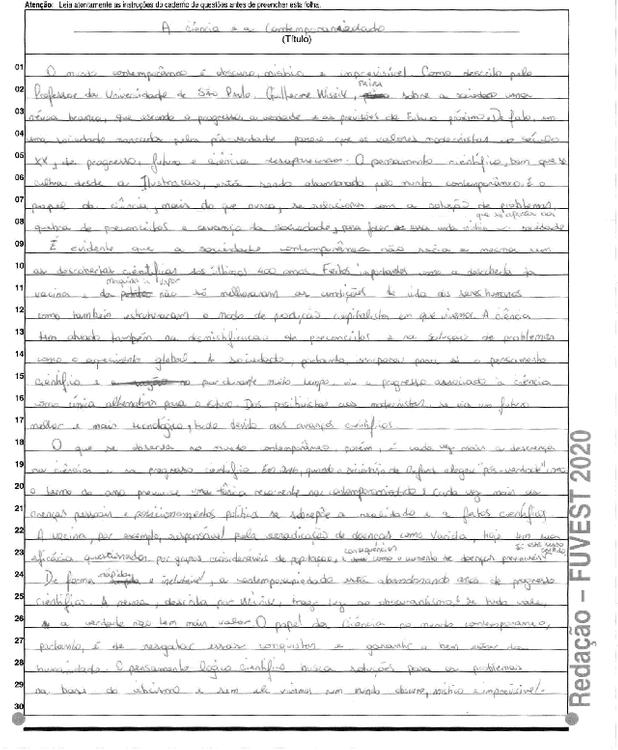 Atenção: Leia atentamente as instruções do caderno de questões antes de preencher esta folha.
A ciência e a contemporaneidade
(Título)
01 O mundo contemporâneo é obscuro, místico e imprevisível. Como descrito pelo
02 Professor da Universidade de São Paulo, Guilherme Wisnik, paira sobre a sociedade uma
03 névoa branca, que esconde o progresso, a verdade e as previsões de futuro próximo. De fato, em
04 uma sociedade marcada pela pós-verdade parece que os valores modernistas do século
05 XX, de progresso, futuro e ciência desapareceram. O pensamento científico, bem que se
06 cultiva desde a Ilustração, está sendo abandonado pelo mundo contemporâneo. E o
07 papel da ciência, mais do que nunca, se relaciona com a solução de problemas,
08 quebra de preconceitos e avanço da sociedade, para
09 É evidente que a sociedade contemporânea não seria a mesma sem
10 as descobertas científicas dos últimos 400 anos. Feitos importantes como a descoberta da
11 vacina e da máquina a vapor não só melhoraram as condições de vida dos seres humanos
12 como também estruturaram o modo de produção capitalista em que vivemos. A ciência
13 tem atuado também na desmistificação de preconceitos e na solução de problemas
14 como o aquecimento global. A sociedade, portanto, para si o pensamento
15 científico e por durante muito tempo, viu o progresso associado à ciência
16 como única alternativa para o futuro. Dos positivistas aos modernistas, se via um futuro
17 melhor e mais tecnológico, tudo devido aos avanços científicos.
18 O que se observa no mundo contemporâneo, porém, é cada vez mais a descrença
19 na ciência e no progresso científico. Em 2016, quando o dicionário de Oxford elegeu "pós-verdade" como
20 o termo do ano previu-se uma tônica recorrente na contemporaneidade: cada vez mais as
21 crenças pessoais e posicionamentos políticos se sobrepõe a realidade e a fatos científicos.
22 A vacina, por exemplo, responsável pela erradicação de doenças como Varíola, hoje tem sua
23 eficácia questionada por grupos consideráveis da população, e consequências como o aumento de doenças
24 De forma rápida e indesejável, a contemporaneidade está abandonando anos de progresso
25 científico. A névoa, descrita por Wisnik, traz luz ao obscurantismo: se tudo vale,
26 a verdade não tem mais valor. O papel da Ciência no mundo contemporâneo,
27 portanto, é de resgatar essas conquistas e garantir o bem estar da
28 humanidade. O pensamento lógico científico busca soluções para os problemas
29 na base do e sem ele vivemos num mundo obscuro, místico e imprevisível.
30
Redação – FUVEST 2020